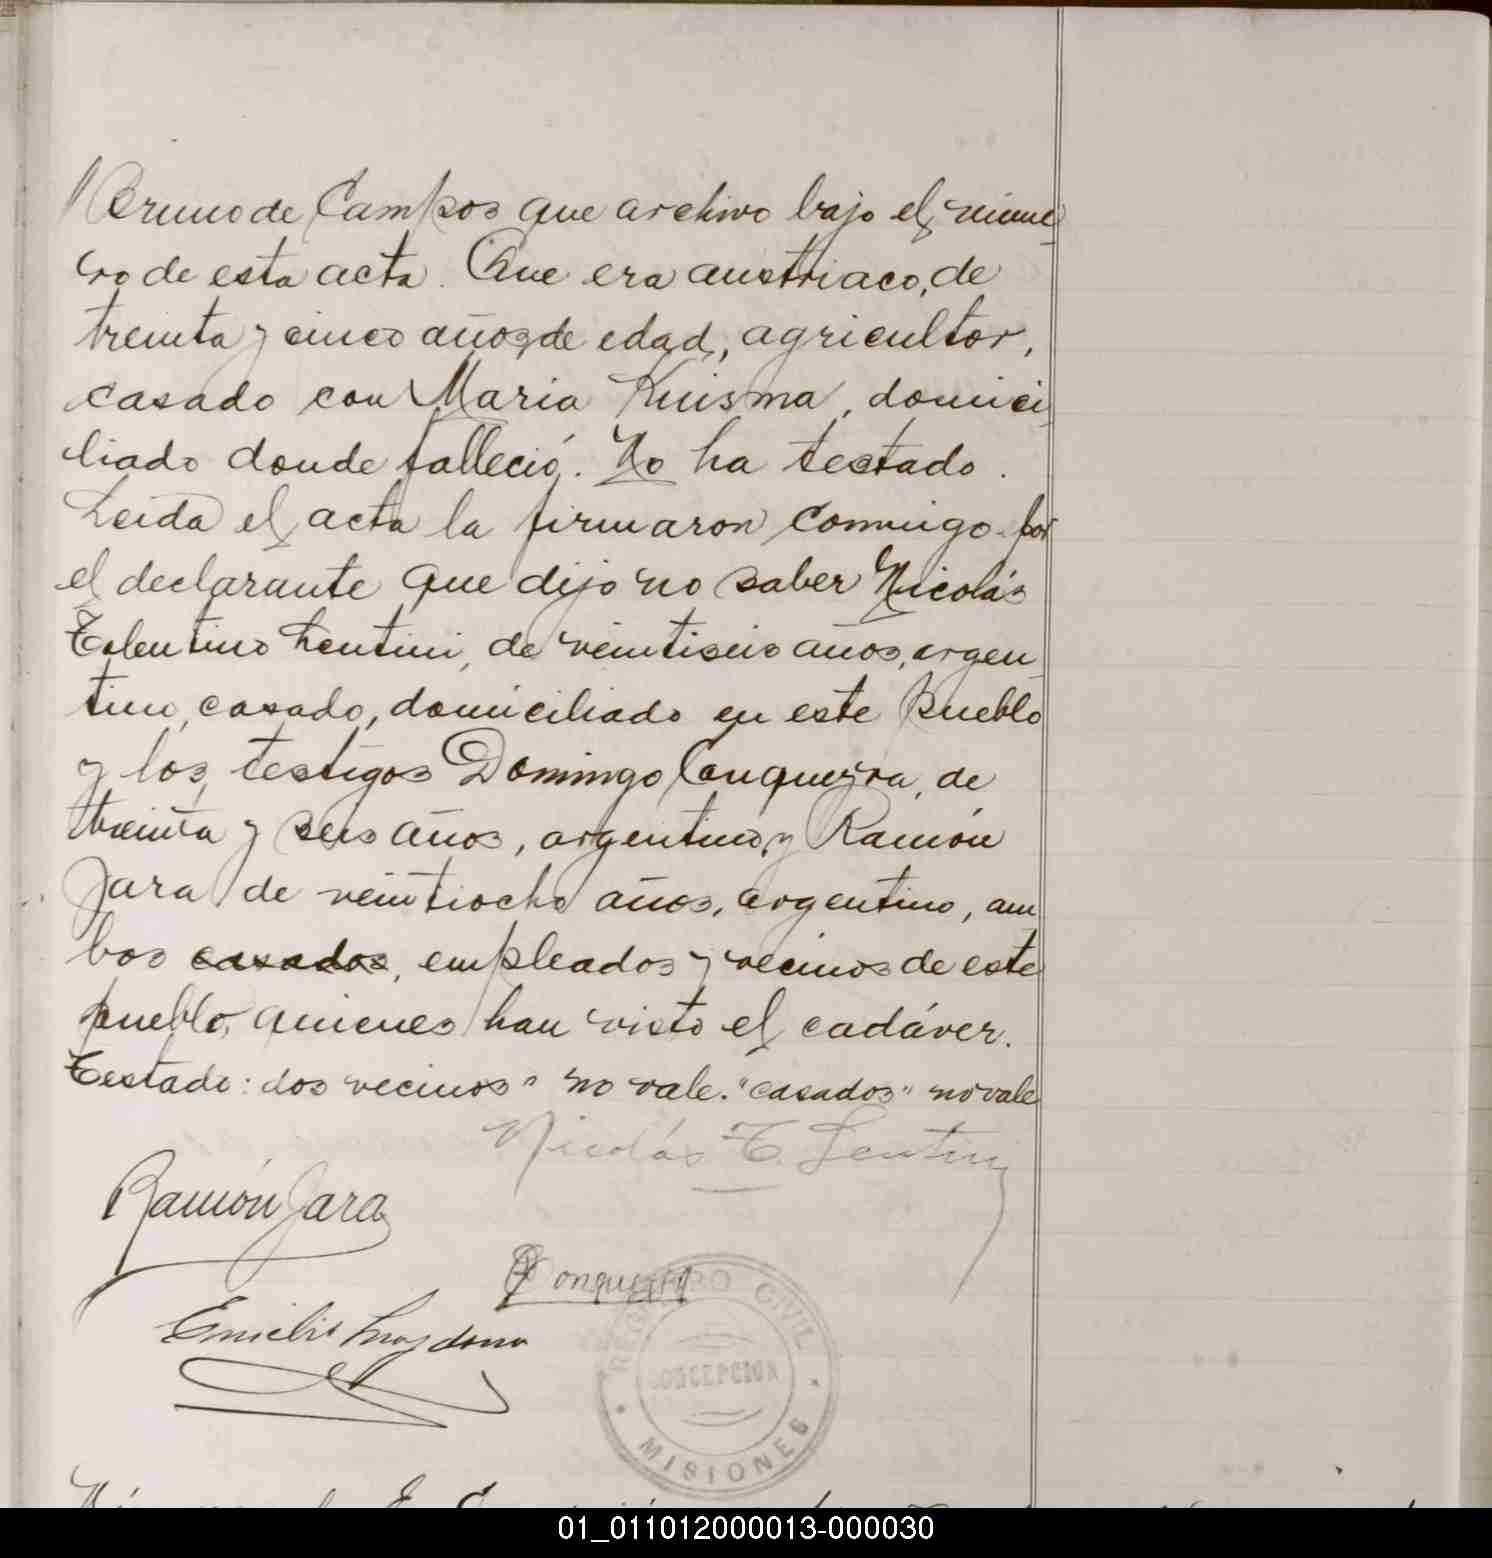 Bruno de Campos que archivo bajo el núme
ro de esta acta. Que era austriaco, de
treinta y cinco años de edad, agricultor,
casado con Maria Kuisma, domici
liado donde falleció. No ha testado.
Leida el acta la firmaron conmigo por
el declarante que dijo no saber Nicolás
Tolentino Lentini, de veintiseis años, argen
tino, casado, domiciliado en este pueblo
y los testigos Domingo Conqueyra, de
treinta y seis años, argentino y Ramón
Jara de veintiocho años, argentino, am
bos casados, empleados y vecinos de este
pueblo, quienes han visto el cadáver.
Testado: dos vecinos" no vale. "casados" no vale
Nicolás T. Lentini
Ramón Jara
Conqueyra
Emilio
REGISTRO CIVIL
CONCEPCION
MISIONES
01_011012000013-000030